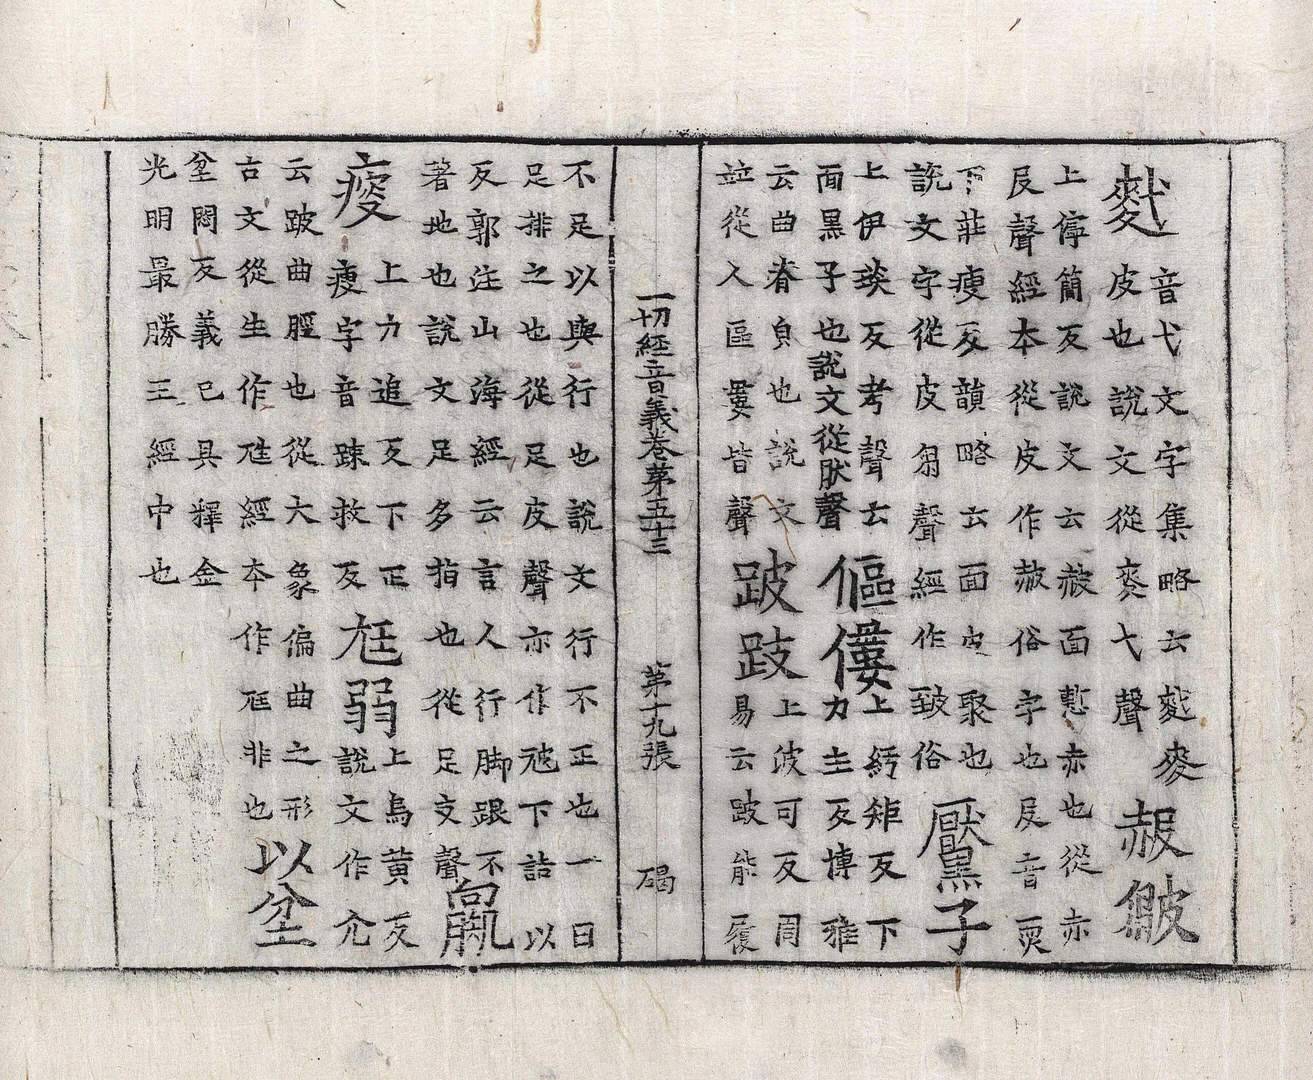 䴬音弋文字集略云䴬麥
皮也說文從麥弋聲赧皺
上停簡反說文云赧面慙赤也從赤
𠬝聲經本從皮作赦俗字也𠬝音
下莊瘦反韻略云面皮聚也
說文字從皮芻聲經作皺俗黶子
上伊琰反考聲云
面黑子也說文從厭聲傴僂上紆矩反下
力主反博雅
云曲脊皃也說文
並從人區婁皆聲跛跂上波可反周
易云跛能履
一切經音義卷第五十三 第十九張 碣
不足以與行也說文行不正也一曰
足排之也從足皮聲亦作𡯁下詰以
反郭注山海經云言人行脚跟不
著地也說文足多指也從足支聲羸
瘦上力追反下正
瘦字音踈救反尪弱上烏黄反
說文作尢
云跛曲脛也從大象偏曲之形
古文從生作尩經本作尫非也以坌
坌悶反義已具釋金
光明最勝王經中也